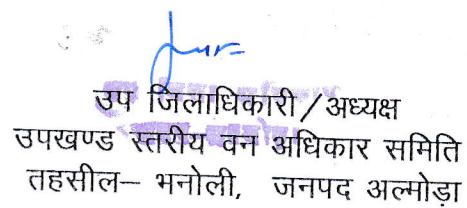 उप जिलाधिकारी/अध्यक्ष
उपखण्ड स्तरीय वन अधिकार समिति
तहसील– भनोली, जनपद अल्मोड़ा